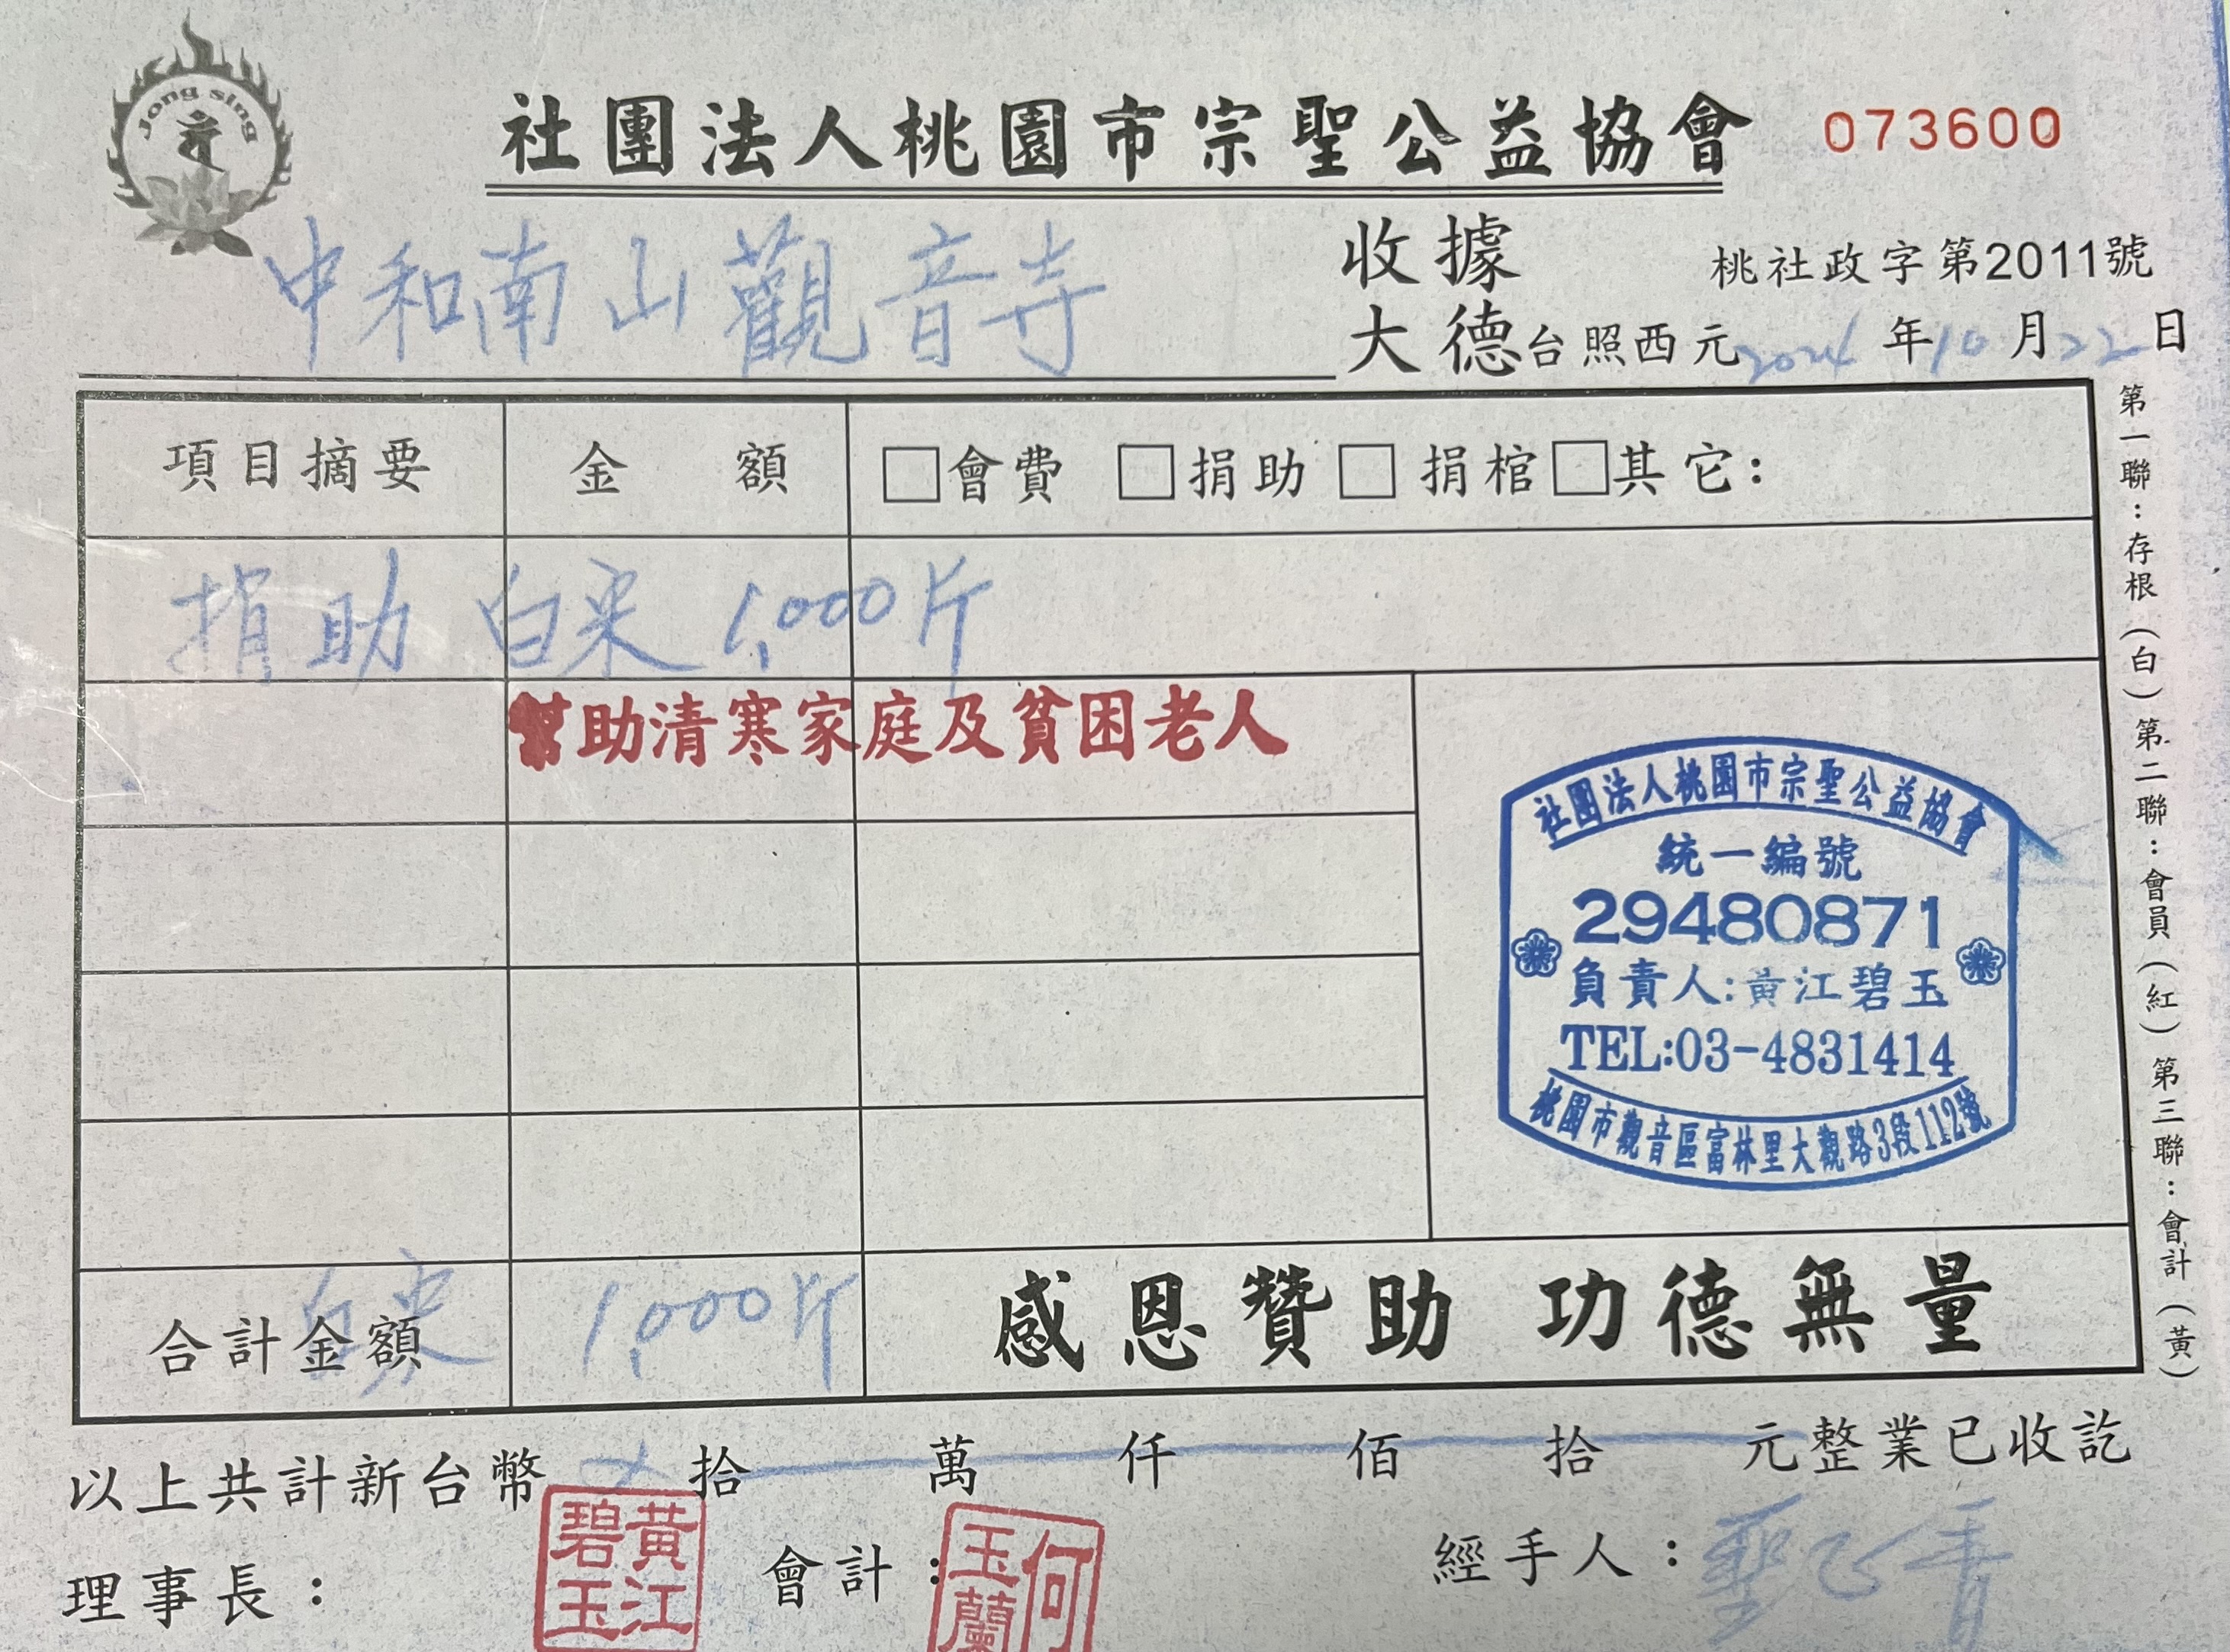 Jong sing
社團法人桃園市宗聖公益協會 073600
收據 桃社政字第2011號
中和南山觀音寺 大德台照西元2024年10月22日
項目摘要 金額 □會費 □捐助 □捐棺 □其它：
捐助 白米 1,000斤
幫助清寒家庭及貧困老人
社團法人桃園市宗聖公益協會
統一編號
29480871
負責人:黃江碧玉
TEL:03-4831414
桃園市觀音區富林里大觀路3段112號
合計金額 白米 1,000斤 感恩贊助 功德無量
以上共計新台幣 拾 萬 仟 佰 拾 元整業已收訖
理事長： 黃江碧玉 會計： 何玉蘭 經手人：
第一聯：存根（白）第二聯：會員（紅）第三聯：會計（黃）